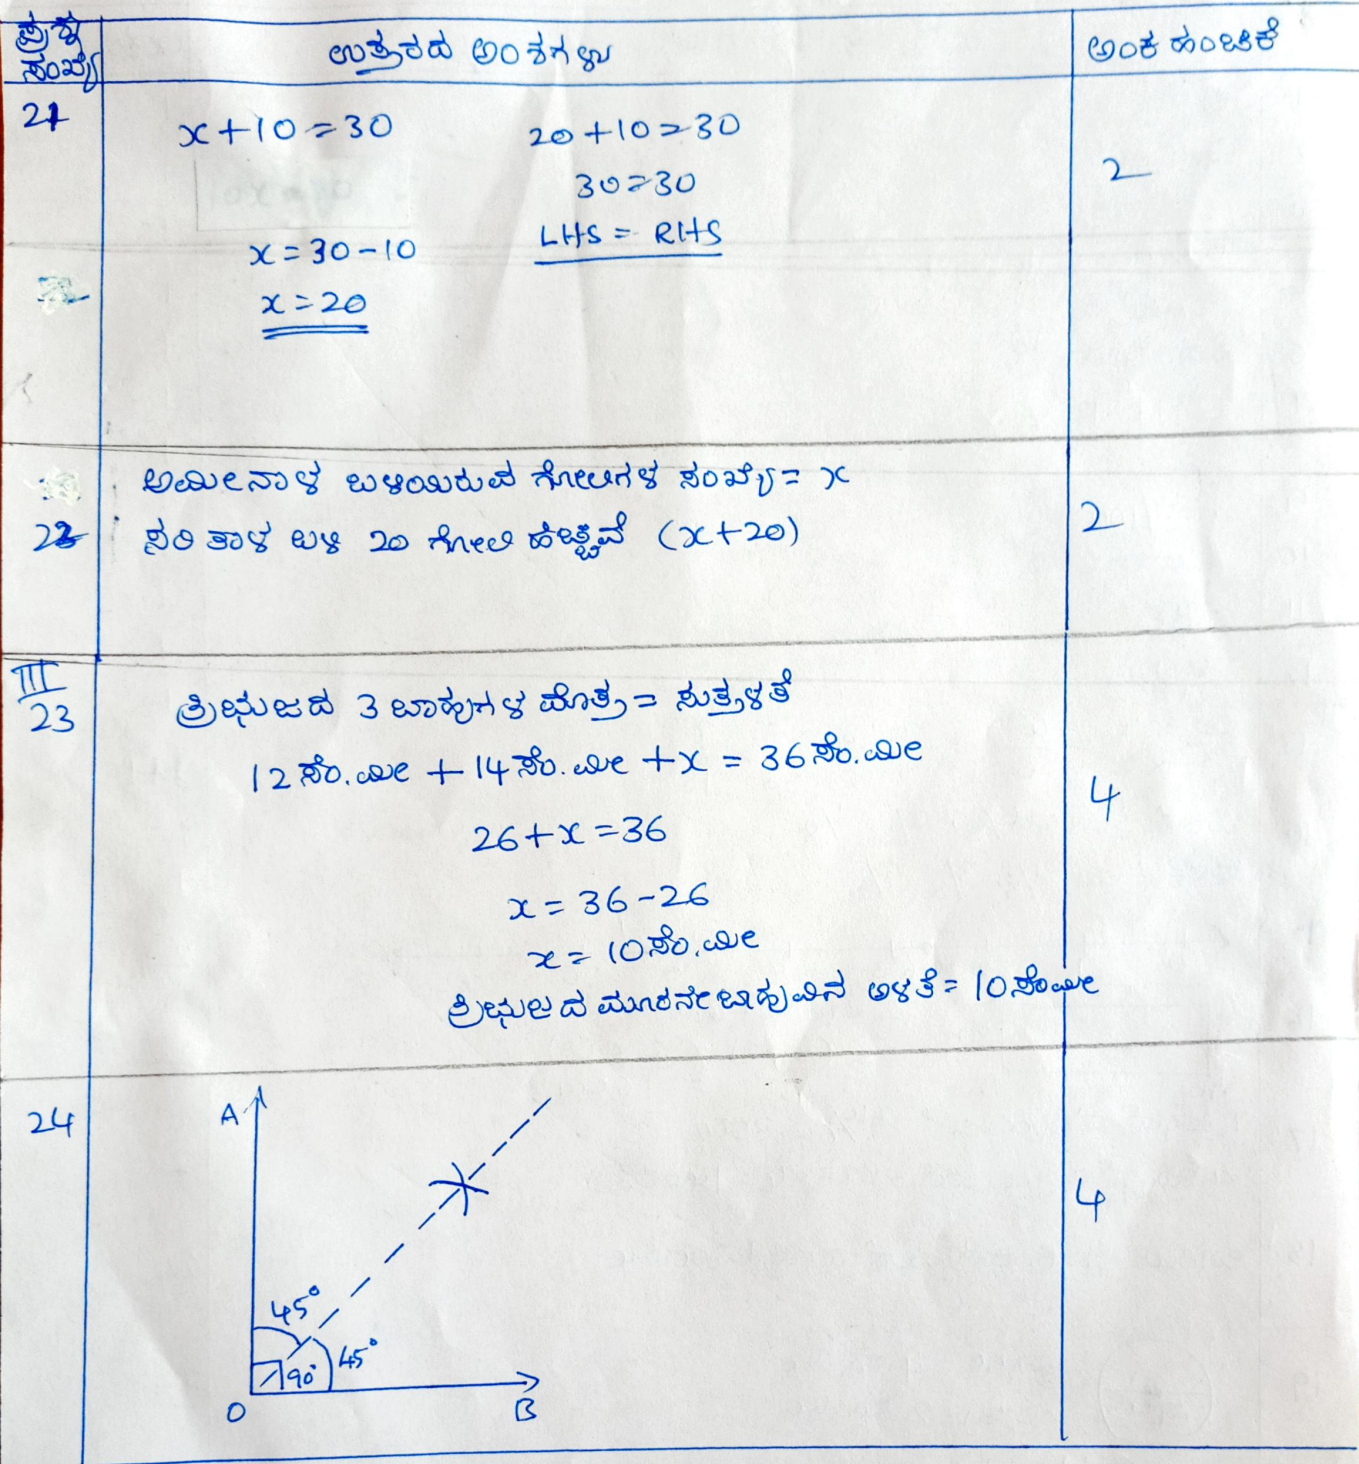 ಪ್ರಶ್ನೆ ಸಂಖ್ಯೆ ಉತ್ತರದ ಅಂಶಗಳು ಅಂಕ ಹಂಚಿಕೆ
21
x+10=30 20+10=30
30=30
2
LHS = RHS
x=30-10
x=20
ಅಮೀನಾಳ ಬಳಿಯಿರುವ ಗೋಲಿಗಳ ಸಂಖ್ಯೆ= x
22 ಸರಿತಾಳ ಬಳಿ 20 ಗೋಲಿ ಹೆಚ್ಚಿವೆ (x+20) 2
III
23 ತ್ರಿಭುಜದ 3 ಬಾಹುಗಳ ಮೊತ್ತ= ಸುತ್ತಳತೆ
12ಸೆಂ.ಮೀ +14ಸೆಂ.ಮೀ +x = 36ಸೆಂ.ಮೀ
4
26+x=36
x=36-26
x=10ಸೆಂ.ಮೀ
ತ್ರಿಭುಜದ ಮೂರನೇ ಬಾಹುವಿನ ಅಳತೆ= 10ಸೆಂಮೀ
24 A
4
45°
45°
90°
O B